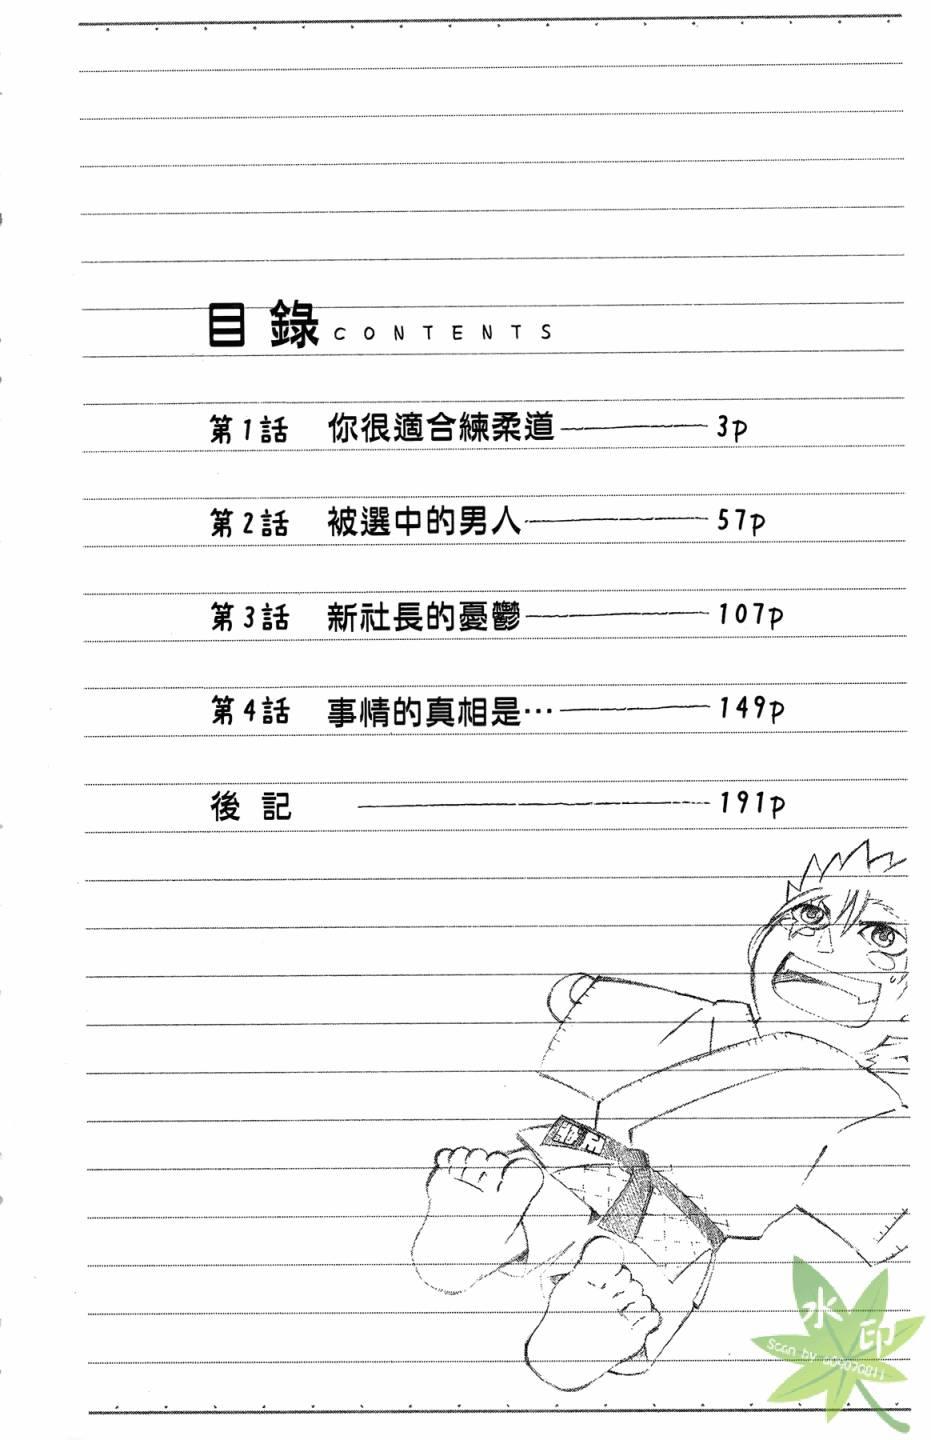 目錄 CONTENTS
第1話 你很適合練柔道 3p
第2話 被選中的男人 57p
第3話 新社長的憂鬱 107p
第4話 事情的真相是… 149p
後記 191p
水印
Scan by